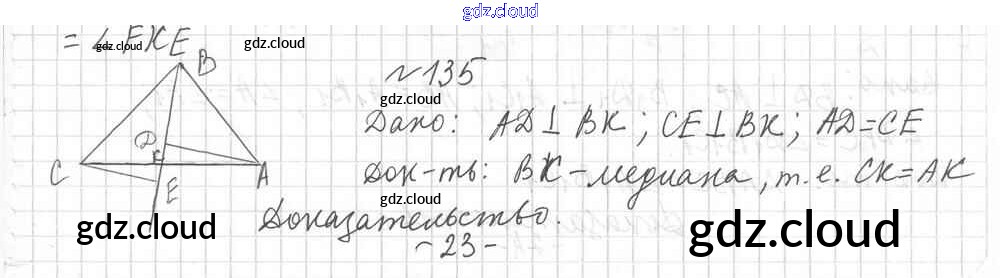 gdz.cloud
= ∠ EKE
gdz.cloud gdz.cloud
B
№ 135
gdz.cloud
Дано: AD⊥BK; CE⊥BK; AD=CE
D
K
C E A
Док-ть: BK - медиана, т.е. CK=AK
gdz.cloud
Доказательство.
gdz.cloud gdz.cloud
- 23 -